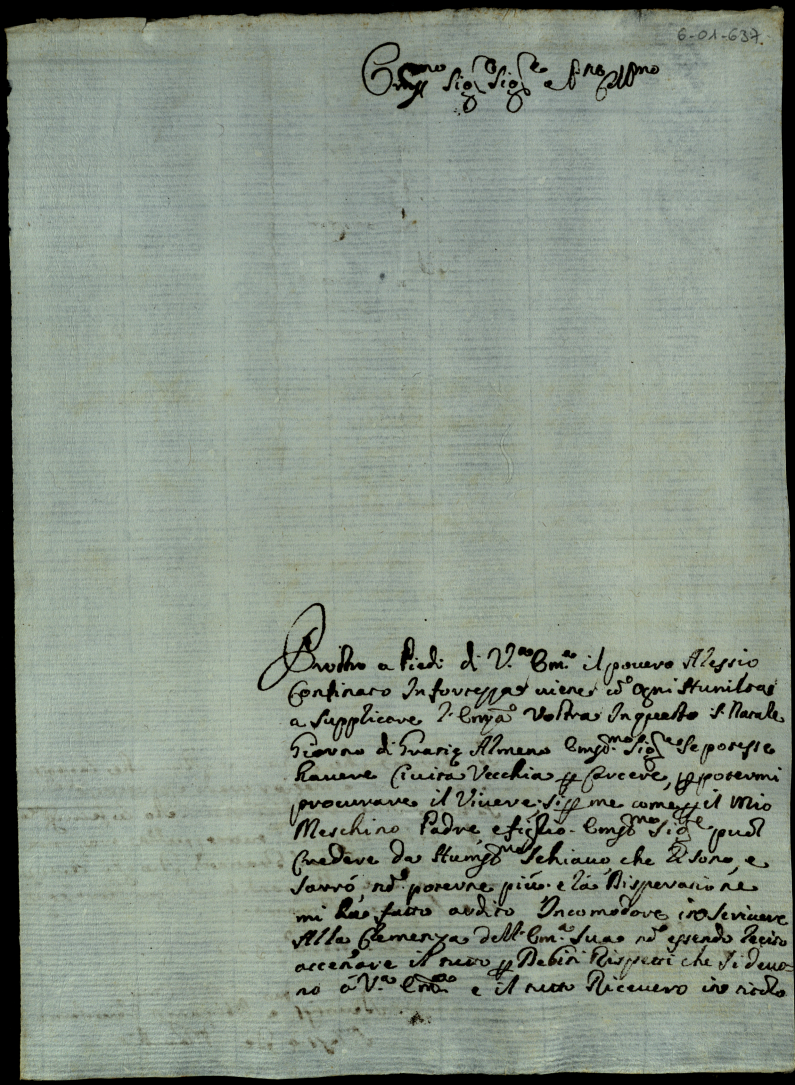 6-01-637.
Em.mo Sig.re Sig.re e P.ne Col.mo
Prostro a Piedi di V.ra Em.za il povero Alessio
Confinato In fortezza viene co' ogni Humiltà
a Supplicare l'Em.za Vostra In questo S. Natale
Giorno di Grazie Almeno Em.mo Sig.re Se potesse
havere Civita Vecchia p Carcere, p potermi
procurare il Vivere sì p me come p il Mio
Meschino Padre e figlio. Em.mo Sig.re può
Credere da Hum.mo Schiavo, che Li sono, e
Sarrò, no' poterne più e la Disperatione
mi ha fatto ardito Incomodare in Scrivere
Alla Clemenza dell'Em.za Sua no' essendo lecito
accenare il tutto p Debiti Rispetti che si devo-
no à V.ra Em.za e il tutto Riceverò in